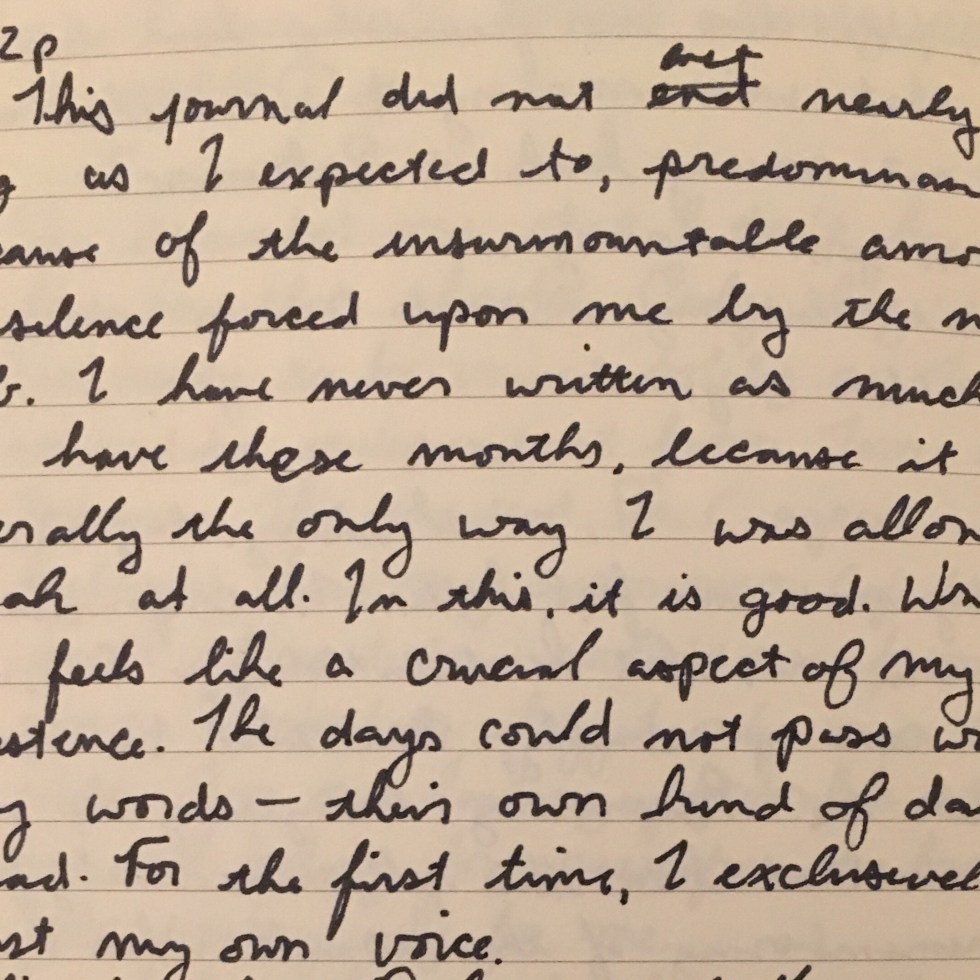 2p
This journal did not end nearly
as I expected to, predominan
ause of the insurmountable amo
silence forced upon me by the
b. I have never written as much
have these months, because it
erally the only way I was allow
eak at all. In this, it is good. Wr
feels like a crucial aspect of my
istence. The days could not pass wi
y words — their own kind of da
ad. For the first time, I exclusivel
ust my own voice.